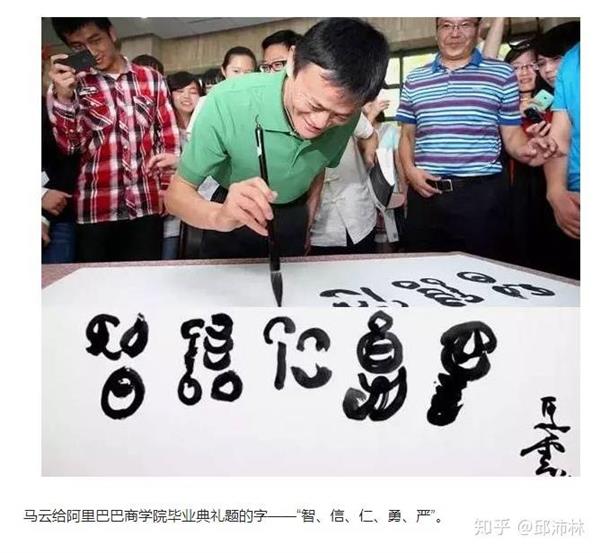 智信仁勇严
马雲
马云给阿里巴巴商学院毕业典礼题的字——“智、信、仁、勇、严”。
知乎 @邱沛林